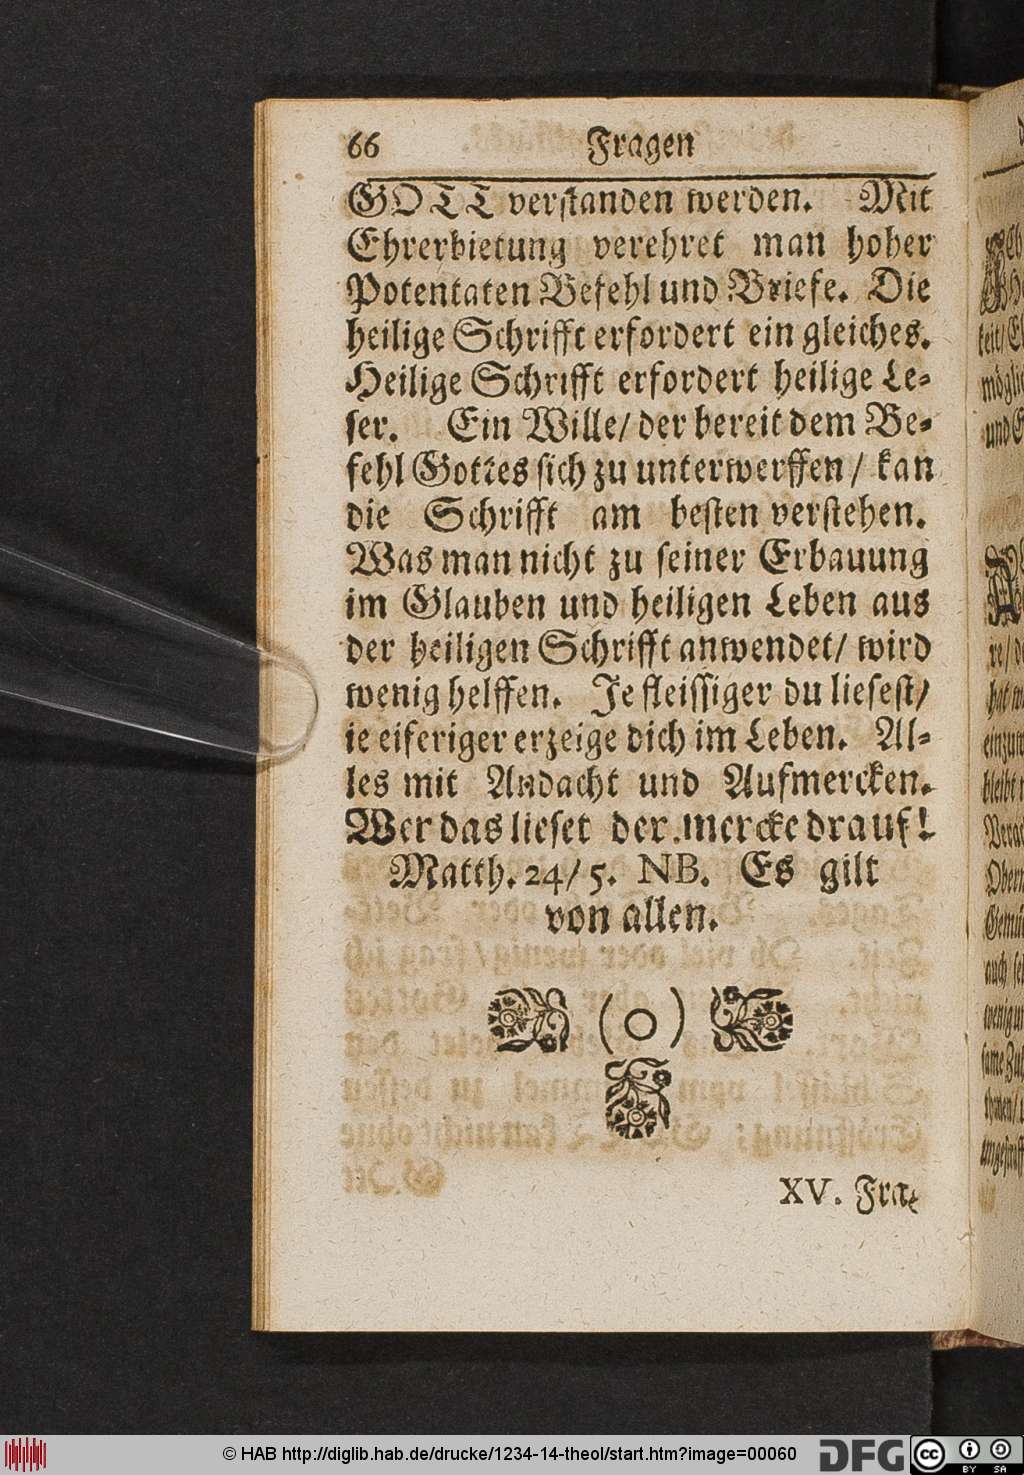 66 Fragen
GOTT verstanden werden. Mit
Ehrerbietung verehret man hoher
Potentaten Befehl und Briefe. Die
heilige Schrifft erfordert ein gleiches.
Heilige Schrifft erfordert heilige Le-
ser. Ein Wille/ der bereit dem Be-
fehl Gottes sich zu unterwerffen/ kan
die Schrifft am besten verstehen.
Was man nicht zu seiner Erbauung
im Glauben und heiligen Leben aus
der heiligen Schrifft anwendet/ wird
wenig helffen. Je fleissiger du liesest/
ie eiferiger erzeige dich im Leben. Al-
les mit Andacht und Aufmercken.
Wer das lieset der mercke drauf!
Matth. 24/ 5. NB. Es gilt
von allen.
(O)
XV. Fra-
keit/
und
re/
hat
bleibt
auch
© HAB http://diglib.hab.de/drucke/1234-14-theol/start.htm?image=00060
DFG
cc BY SA